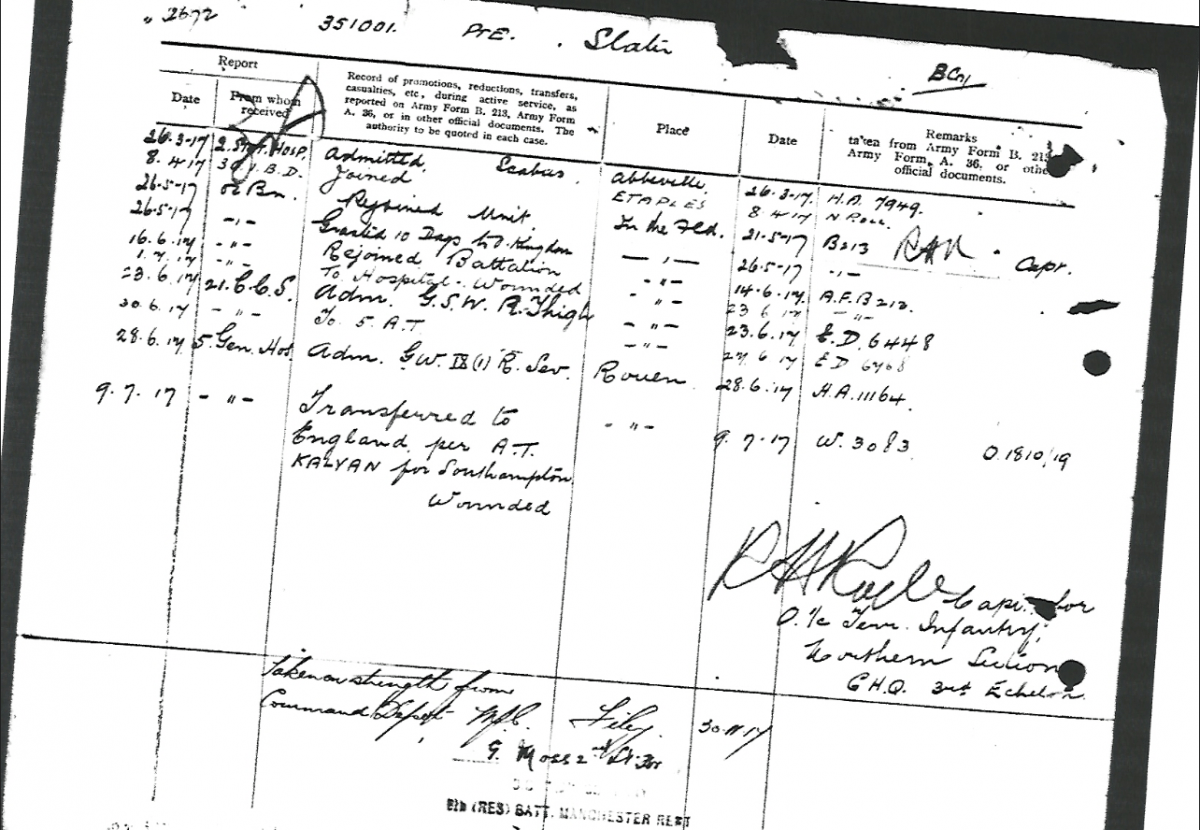 2672 351001. PTE. Slater
BCn/
Report
Date
From whom received
Record of promotions, reductions, transfers, casualties, etc., during active service, as reported on Army Form B. 213, Army Form A. 36, or in other official documents. The authority to be quoted in each case.
Place
Date
Remarks taken from Army Form B. 213, Army Form A. 36, or other official documents.
26-3-17 2. Stat. HOSP. Admitted, Scabies. Abbeville, 26-3-17 H.A. 7949.
8.4.17 I.B.D. Joined ETAPLES 8.4.17 N Roll
26-5-17 Bn. Rejoined Unit In the Fld. 21-5-17 B213 Capt.
26.5-17 -"- Granted 10 Days to U. Kingdom — " — 26.5-17 -"-
16.6.17 -"- Rejoined Battalion -"- 14-6-17. A.F.B 213.
1.7.17 -"- To Hospital - Wounded -"- 23 6 17 -"-
23.6.17 21. C.C.S. Adm. G.S.W. R. Thigh -"- 23.6.17 E.D. 6448
30.6.17 -"- To 5 A.T. -"- 27 6 17 ED
28.6.17 5. Gen. Hos. Adm. G.W. IX (1) R. Sev. Rouen 28.6.17 H.A. 11164.
9.7.17 -"- Transferred to -"- 9.7.17 W. 3083 O.1810/19
England per A.T.
KALYAN for Southampton
Wounded
Capt. for
O. i/c Terr. Infantry,
Northern Section
G.H.Q. 3rd Echelon.
Taken on strength from
Command Depot M.C. Filey 30.11.17
G. Moss 2nd Lt. for
8th (RES) BATT. MANCHESTER REGT